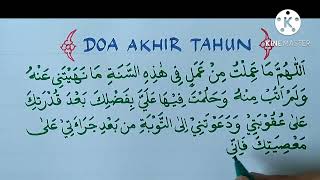 KINEMASTER
DOA AKHIR TAHUN
اَللّٰهُمَّ مَا عَمِلْتُ مِنْ عَمَلٍ فِى هٰذِهِ السَّنَةِ مَا نَهَيْتَنِي عَنْهُ
وَلَمْ اَتُبْ مِنْهُ وَحَلُمْتَ فِيْهَا عَلَيَّ بِفَضْلِكَ بَعْدَ قُدْرَتِكَ
عَلَى عُقُوْبَتِيْ وَدَعَوْتَنِيْ اِلَى التَّوْبَةِ مِنْ بَعْدِ جَرَاءَتِيْ عَلَى
مَعْصِيَتِكَ فَاِنِّي